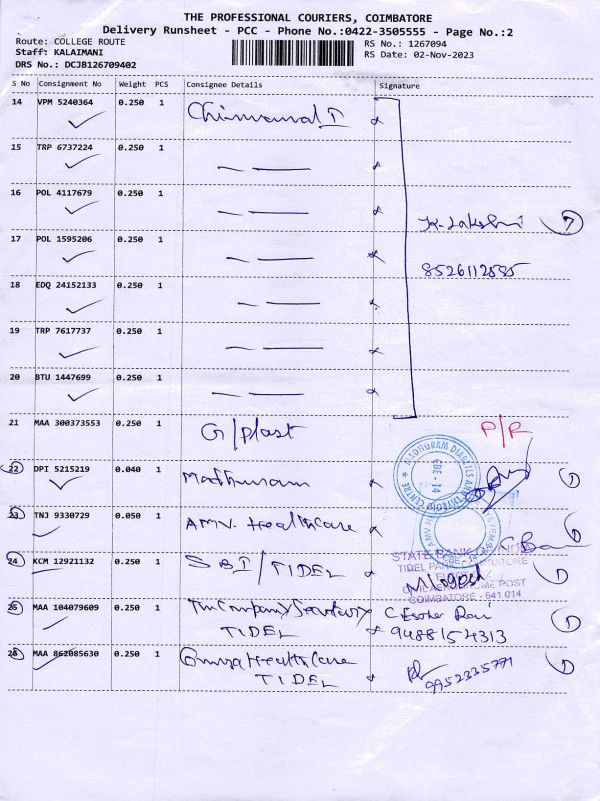 THE PROFESSIONAL COURIERS, COIMBATORE
Delivery Runsheet - PCC - Phone No.:0422-3505555 - Page No.:2
Route: COLLEGE ROUTE
Staff: KALAIMANI
DRS No.: DCJB126709402
RS No.: 1267094
RS Date: 02-Nov-2023
S No Consignment No Weight PCS Consignee Details Signature
14 VPM 5240364 0.250 1
15 TRP 6737224 0.250 1
16 POL 4117679 0.250 1
K. Lakshmi 7
17 POL 1595206 0.250 1
8526112585
18 EDQ 24152133 0.250 1
19 TRP 7617737 0.250 1
20 BTU 1447699 0.250 1
21 MAA 300373553 0.250 1 G/plast P/R
22 DPI 5215219 0.040 1 Madhuram 1
MADHURAM DIABETES AND THYROID CENTRE
CBE - 14
23 TNJ 9330729 0.050 1 AMV. Healthcare 1
24 KCM 12921132 0.250 1 SBI/TIDEL 1
STATE BANK OF INDIA
COIMBATORE - 641 014
25 MAA 104079609 0.250 1 TM Company Secretary 1
TIDEL 9488154313
26 MAA 862085630 0.250 1 Healthcare 1
TIDEL 9952335771